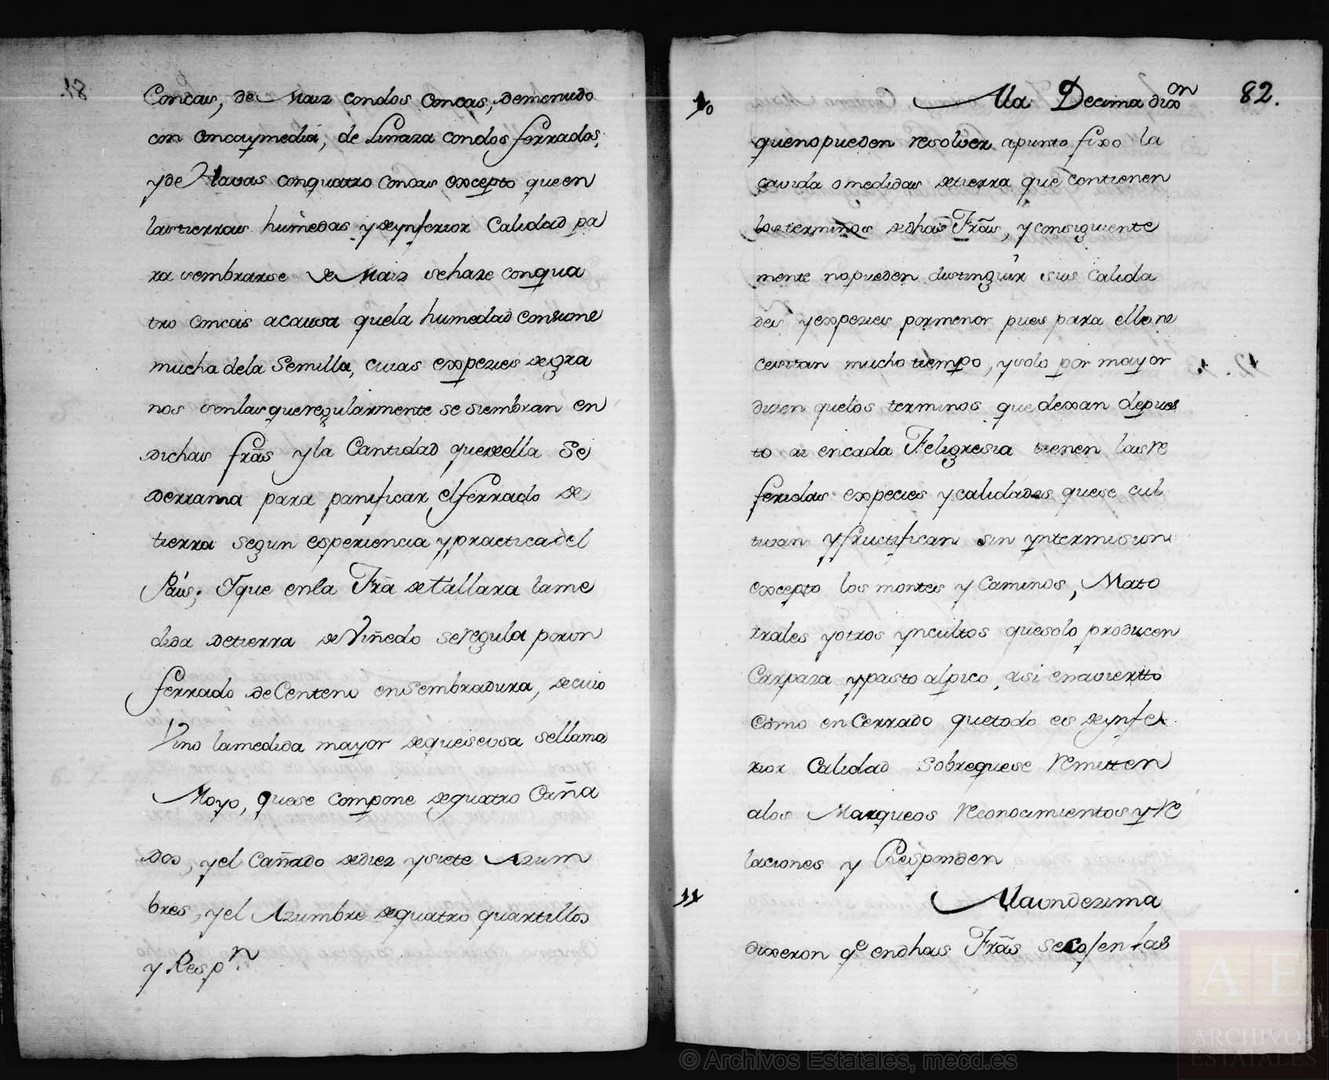 81.
Concas, de Maiz condos Concas, demenudo
con Concaymedia, de Linaza condos ferrados,
yde Havas conquatro Concas excepto queen
lastierras humedas, y deynferior Calidad pa
ra sembrarse de Maiz sehaze conqua
tro concas acausa quela humedad consume
mucha dela Semilla, cuias expezies degra
nos sonlas queregularmente se siembran en
dichas frãs yla Cantidad quedella Se
derrama para panificar, elferrado de
tierra segun esperiencia ypracticadel
País; Yque enla Frã detallara lame
dida detierra deViñedo seregula porun
ferrado deCenteno enSembradura, decuio
Vino lamedida mayor dequeseusa sellama
Moyo, quese compone dequatro Cañà
dos, yel Cañado dediez ysiete Azum
bres, yel Azumbre dequatro quartillos
y Resp.n
10 Ala Decima dixon 82.
quenopueden resolver apunto fixo la
cavida omedidas detierra que contienen
losterminos dedhas Frãs, yconsiguiente
mente nopueden distinguir sus calida
des yexpezies pormenor pues para ello ne
cesitan mucho tiempo, ysolo por mayor
dizen quelos terminos que dexan depues
to ai encada Feligresia tienen lasre
feridas expecies ycalidades quese cul
tivan yfructifican sin yntermision
excepto los montes y Caminos, Mato
rrales yotros yncultos quesolo producen
Carpaza ypasto alpico, asi enavierto
como enCerrado quetodo es deynfe
rior Calidad sobrequese remitten
alos Marqueos reconocimientos y re
laciones y Responden
11 Alaundezima
dixeron qe endhas Frãs secojen las
AE
ARCHIVOS
ESTATALES
© Archivos Estatales, mecd.es